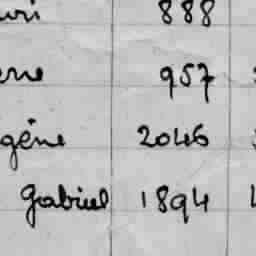 888
957
gène 2046
Gabriel 1894